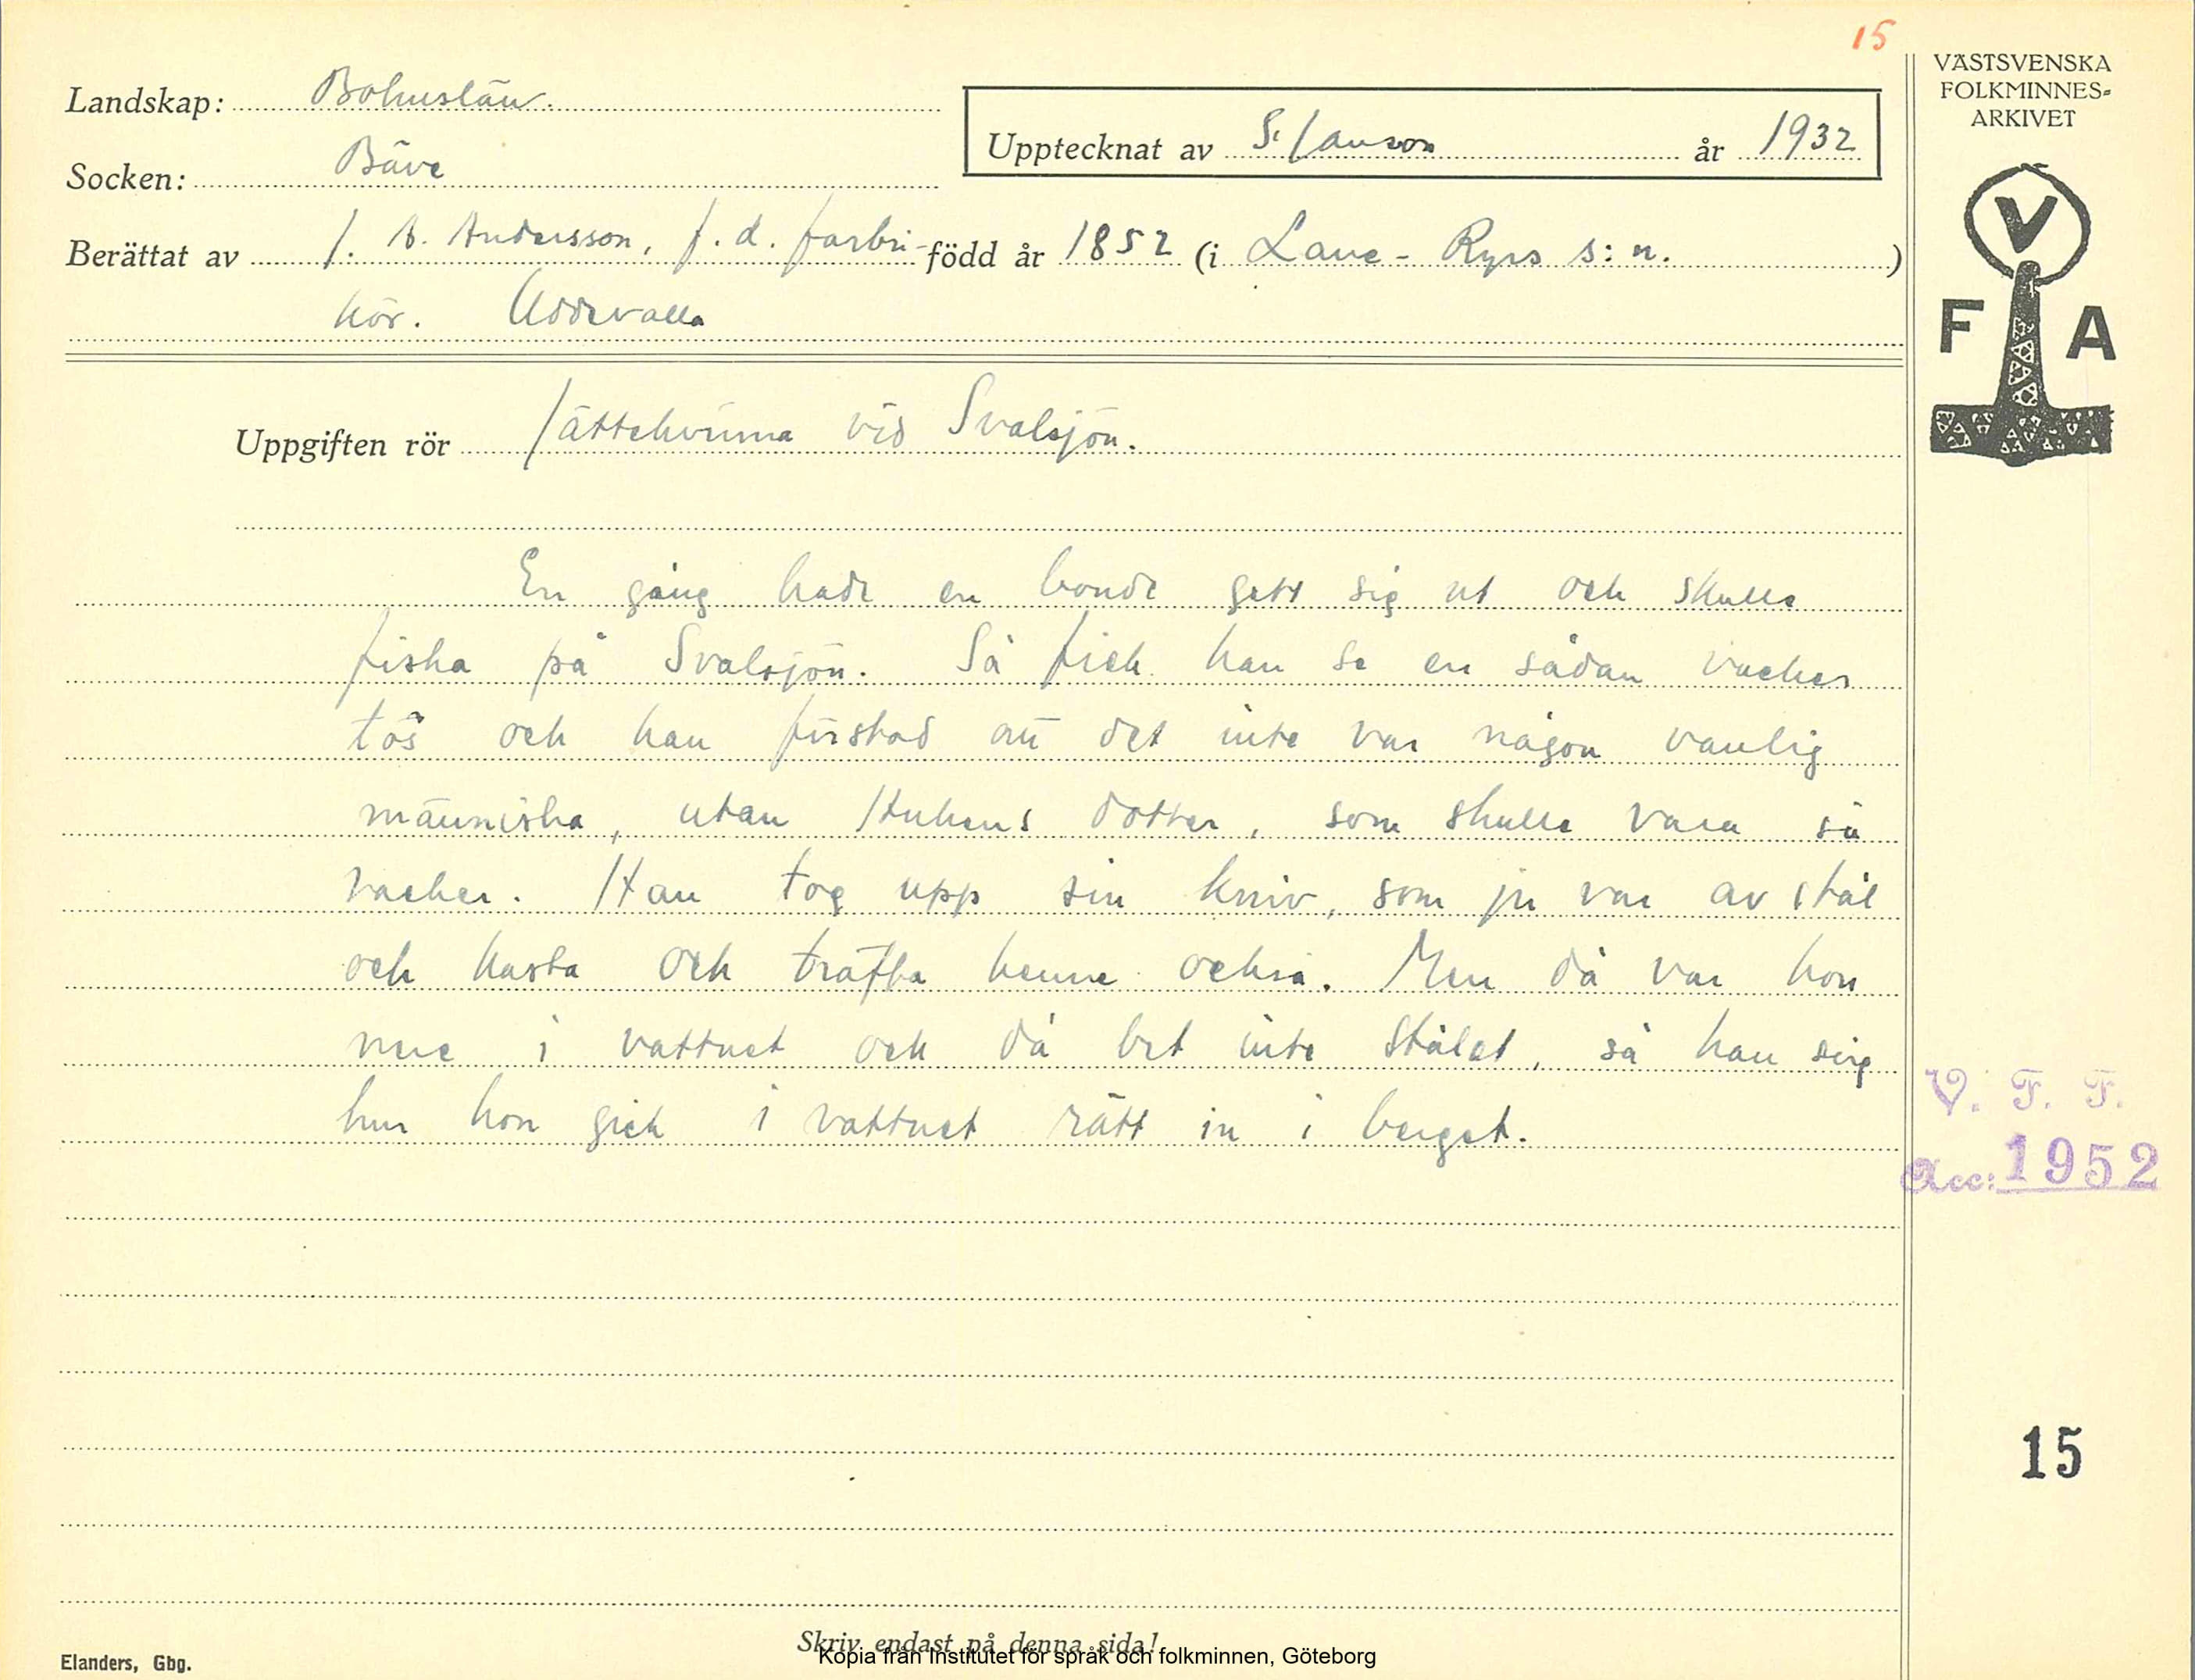 15
VÄSTSVENSKA
FOLKMINNES-
ARKIVET
Landskap: Bohuslän.
Upptecknat av S. Janson år 1932
Socken: Bäve
Berättat av J. A. Andersson, f. d. farbri- född år 1852 (i Lane-Ryrs s:n.)
kör. Uddevalla
V
F A
Uppgiften rör Jättekvinna vid Svalsjön.
En gång hade en bonde gett sig ut och skulle
fiska på Svalsjön. Så fick han se en sådan vacker
tös och han förstod att det inte var någon vanlig
människa, utan Hukens dotter, som skulle vara så
vacker. Han tog upp sin kniv, som ju var av stål
och kasta och träffa henne också. Men då var hon
nere i vattnet och då bet inte stålet, så han såg
hur hon gick i vattnet rätt in i berget.
V. F. F.
Acc: 1952
15
Skriv endast på denna sida!
Kopia från Institutet för språk och folkminnen, Göteborg
Elanders, Gbg.